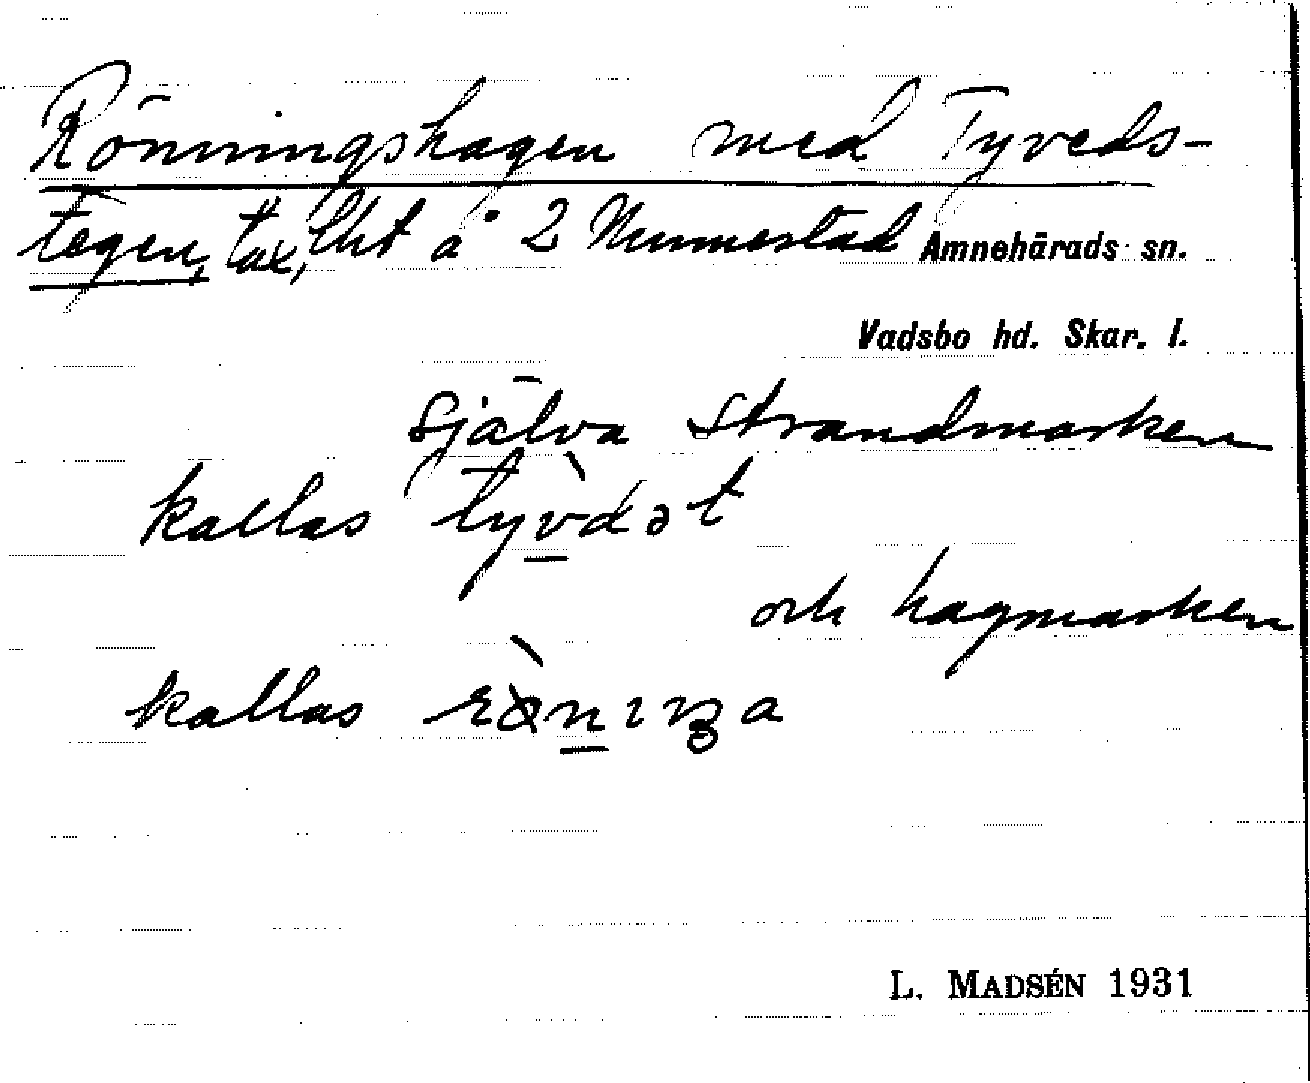 Rönningshagen med Tyveds-
tegen, tax, lht å 2 Nunnestad Amnehärads sn.
Vadsbo hd. Skar. l.
Själva strandmarken
kallas tỳvdət
och hagmarken
kallas
L. MADSÉN 1931